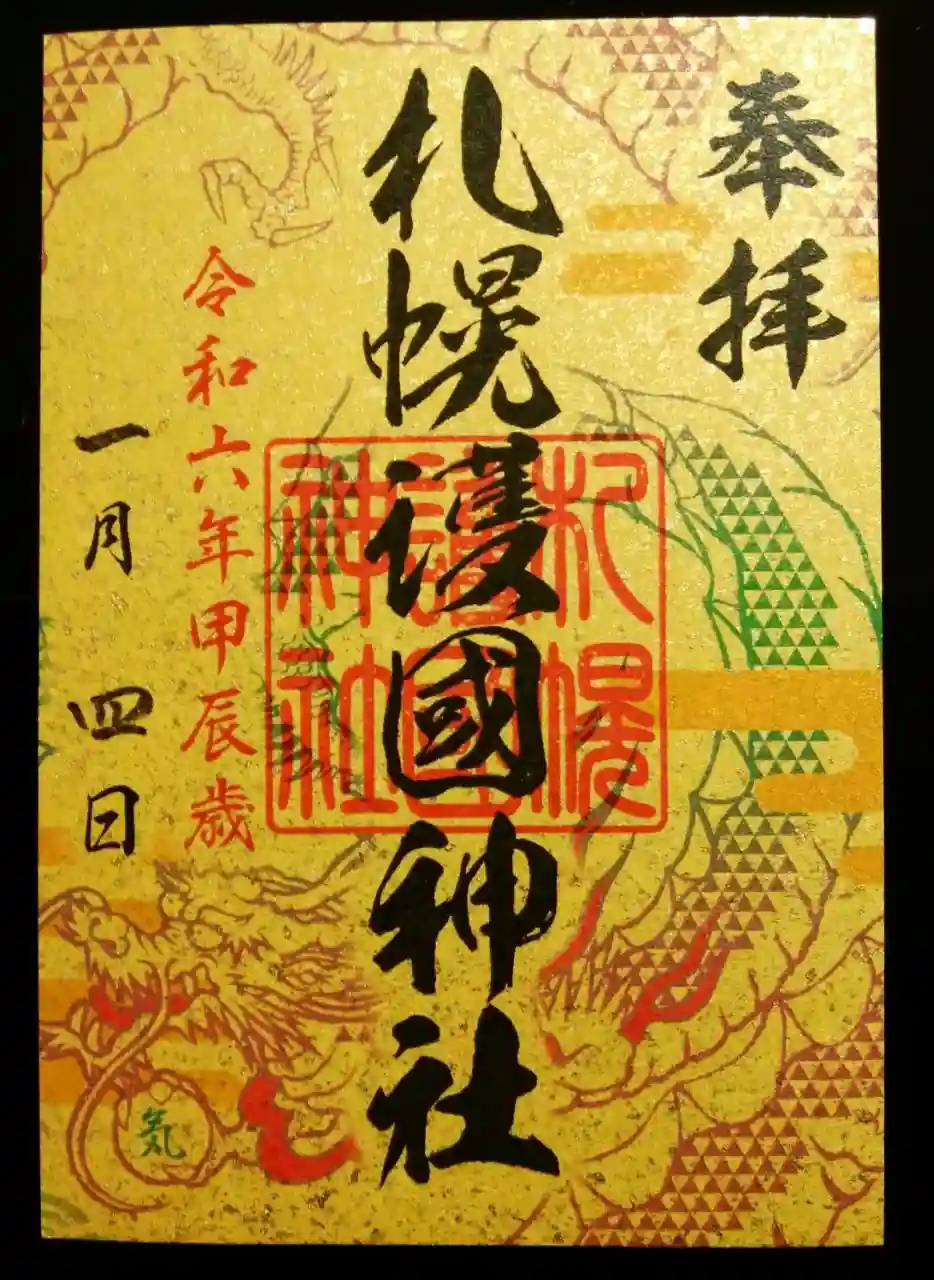 奉拝
札幌護國神社
札幌
護國
神社
令和六年甲辰歳
一月四日
気